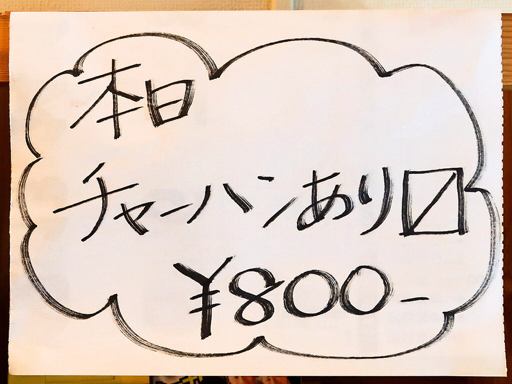 本日
チャーハンあり〼
¥800-